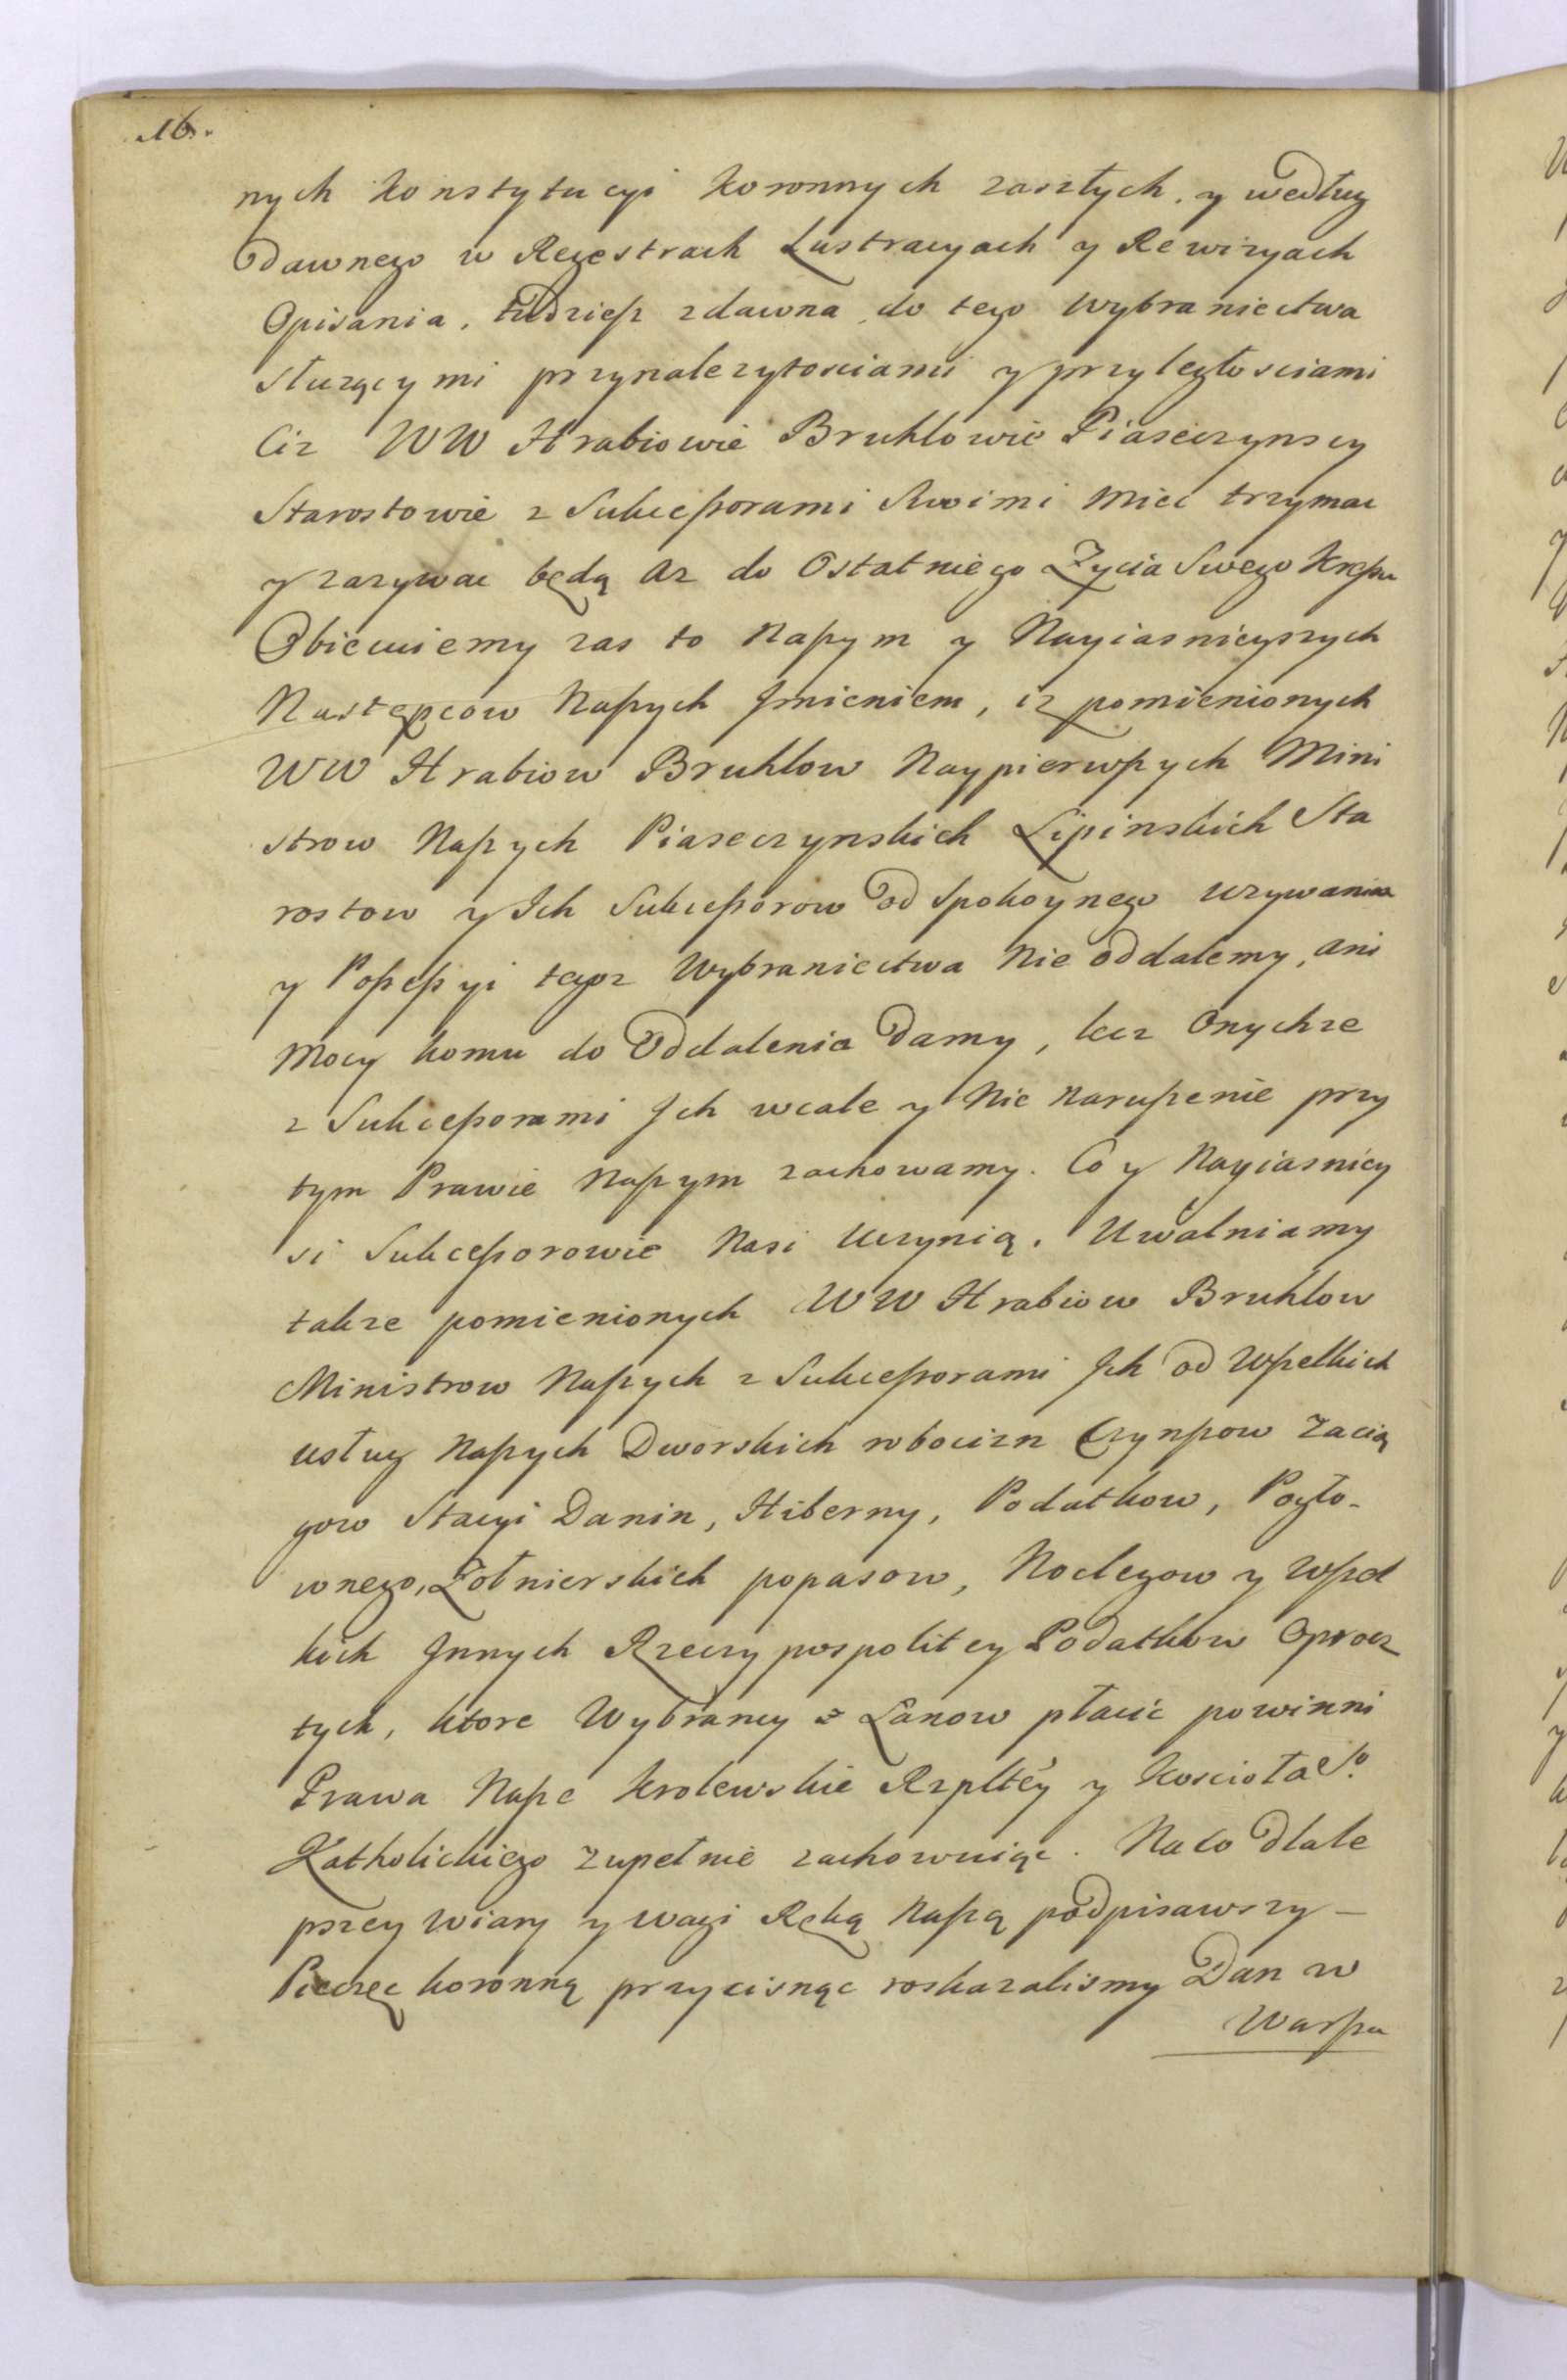 16.
nych Konstytucyi Koronnych zaszłych, y według
Dawnego w Regestrach Lustracyach y Rewizyach
Opisania, tudzieß zdawna do tego Wybraniectwa
służącymi przynalezytosciami y przyległosciami
Ciz WW Hrabiowie Bruhlowie Piaseczynscy
Starostowie z Sukceßorami Swimi miec trzymac
y zazywac będą az do Ostatniego Zycia Swego Kreßu
Obiecuiemy zas to Naßym y Nayiasnieyszych
Następcow Naßych Jmieniem, iz pomienionych
WW Hrabiow Bruhlow Naypierwßych Mini
strow Naßych Piaseczynskich Lipinskich Sta
rostow y Ich Sukceßorow od Spokoynego uzywania
y Poßeßyi tegoz Wybraniectwa Nie oddalemy, ani
Mocy komu do Oddalenia Damy, lecz Onychze
z Sukceßorami Jch wcale y Nie Narußenie przy
tym Prawie Naßym zachowamy. Co y Nayiasniey
si Sukceßorowie Nasi Uczynią. Uwalniamy
takze pomienionych WW Hrabiow Bruhlow
Ministrow Naßych z Sukceßorami Jch od Wßelkich
usług Naßych Dworskich robocizn Czynßow Zacią
gow Stacyi Danin, Hiberny, Podatkow, Pogło-
wnego, Zołnierskich popasow, Noclegow y Wßel
kich Jnnych Rzeczypospolitey Podatkow Oprocz
tych, ktore Wybrancy z Łanow płacić powinni
Prawa Naße Krolewskie Rzpltéy y Koscioła So.
Katholickiego Zupełnie zachowuiąc. Na co Dlale
pszey Wiary y wagi Ręką Naßą podpisawszy –
Pieczęc koronną przycisnąc roskazalismy Dan w
Warßa